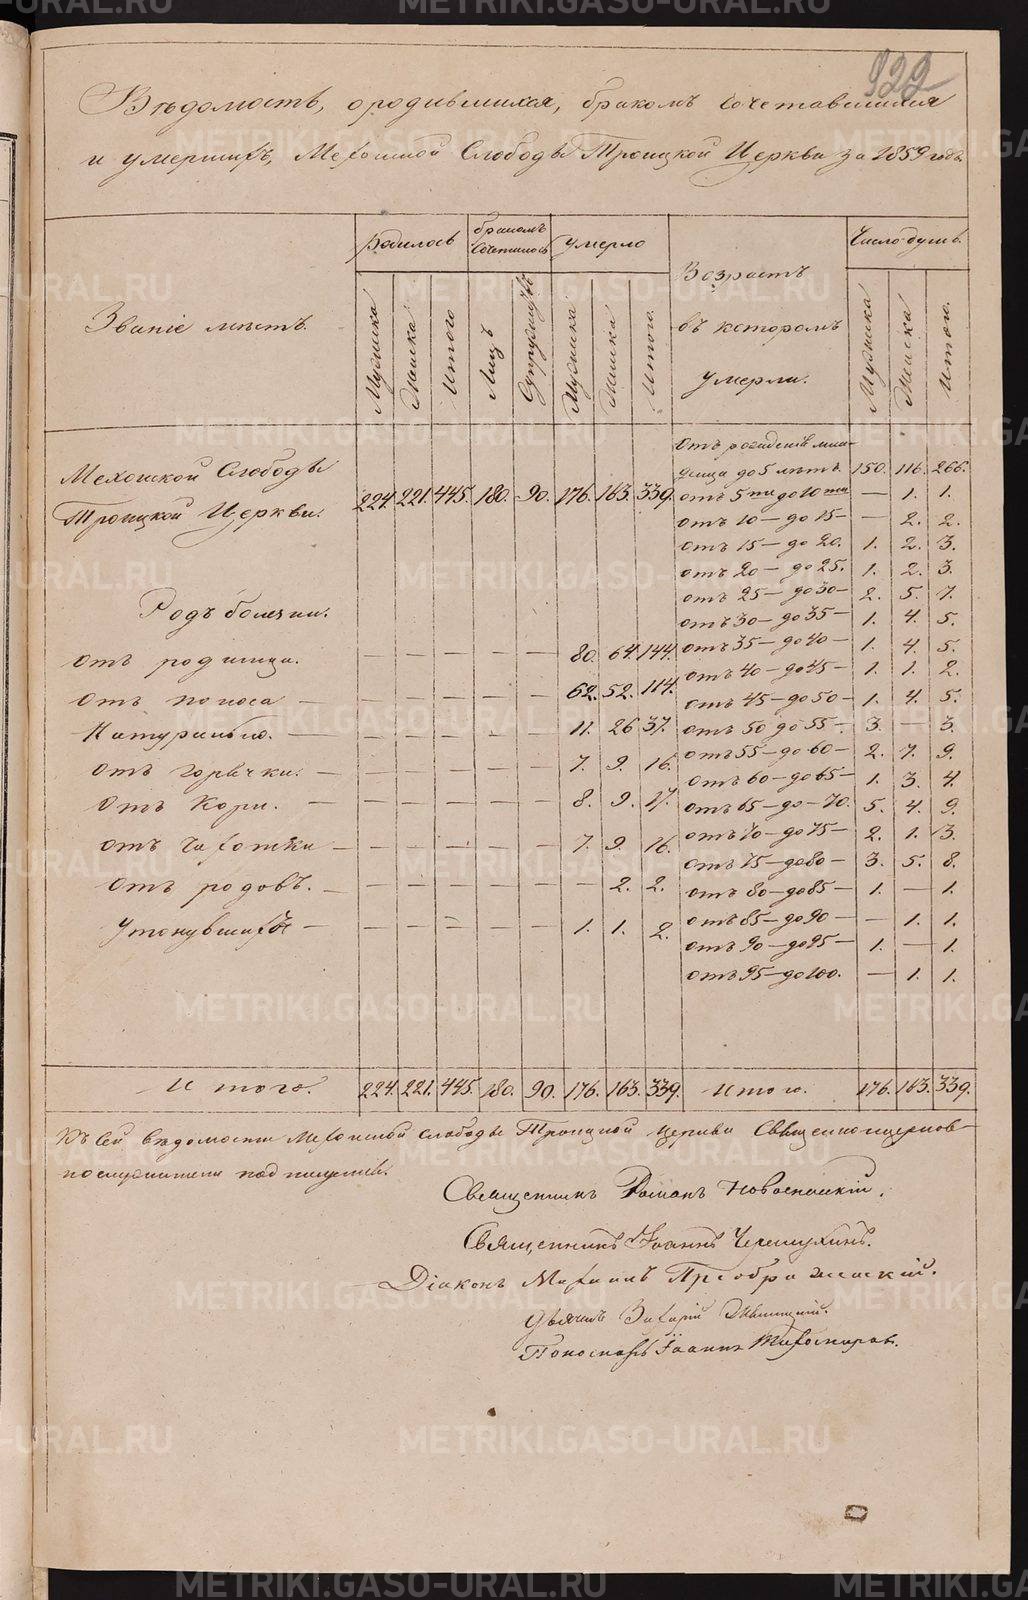 922
Вѣдомость, о родившихся, бракомъ сочетавшихся
и умершихъ, Мехонской Слободы Троицкой Церкви за 1859 годъ.
Званіе мѣстъ. Родилось Бракомъ сочетилось Умерло Возрастъ въ которомъ умерли. Число душъ.
Мужска Женска Итого Лицъ Супружествъ Мужска Женска Итого. Мужска Женска Итого.
Мехонской Слободы
Троицкой Церкви. 224. 221. 445. 180. 90. 176. 163. 339.
Отъ рожденія мла-
денца до 5 лѣтъ. 150. 116. 266.
отъ 5ти до 10ти — 1. 1.
отъ 10 — до 15 — — 2. 2.
отъ 15 — до 20. 1. 2. 3.
отъ 20 — до 25. 1. 2. 3.
отъ 25 — до 30 — 2. 5. 7.
отъ 30 — до 35 — 1. 4. 5.
отъ 35 — до 40 — 1. 4. 5.
отъ 40 — до 45 — 1. 1. 2.
отъ 45 — до 50 — 1. 4. 5.
отъ 50 до 55 — 3. — 3.
отъ 55 — до 60 — 2. 7. 9.
отъ 60 — до 65 — 1. 3. 4.
отъ 65 — до — 70. 5. 4. 9.
отъ 70 — до 75 — 2. 1. 3.
отъ 75 — до 80 — 3. 5. 8.
отъ 80 — до 85 — 1. — 1.
отъ 85 — до 90 — — 1. 1.
отъ 90 — до 95 — 1. — 1.
отъ 95 — до 100. — 1. 1.
Родъ болезни.
отъ родимца. — — — — — 80. 64. 144.
отъ поноса — — — — — — 62. 52. 114.
Натурально. — — — — — — 11. 26 37.
отъ горячки. — — — — — — 7. 9. 16.
отъ Кори. — — — — — — 8. 9. 17.
отъ чахотки — — — — — — 7. 9. 16.
отъ родовъ. — — — — — — — 2. 2.
Утонувшихъ — — — — — — 1. 1. 2.
Итого. 224. 221. 445. 180. 90. 176. 163. 339. Итого. 176. 163. 339.
Къ сей вѣдомости Мехонской слободы Троицкой церкви Священноцерков-
нослужители подписались.
Священникъ Романъ Новоспасскій.
Священникъ Іоаннъ Черемухинъ.
Діаконъ Преображенскій.
Дьячикъ Захарій
Пономарь Іоаннъ Тихомировъ.
METRIKI.GASO-URAL.RU